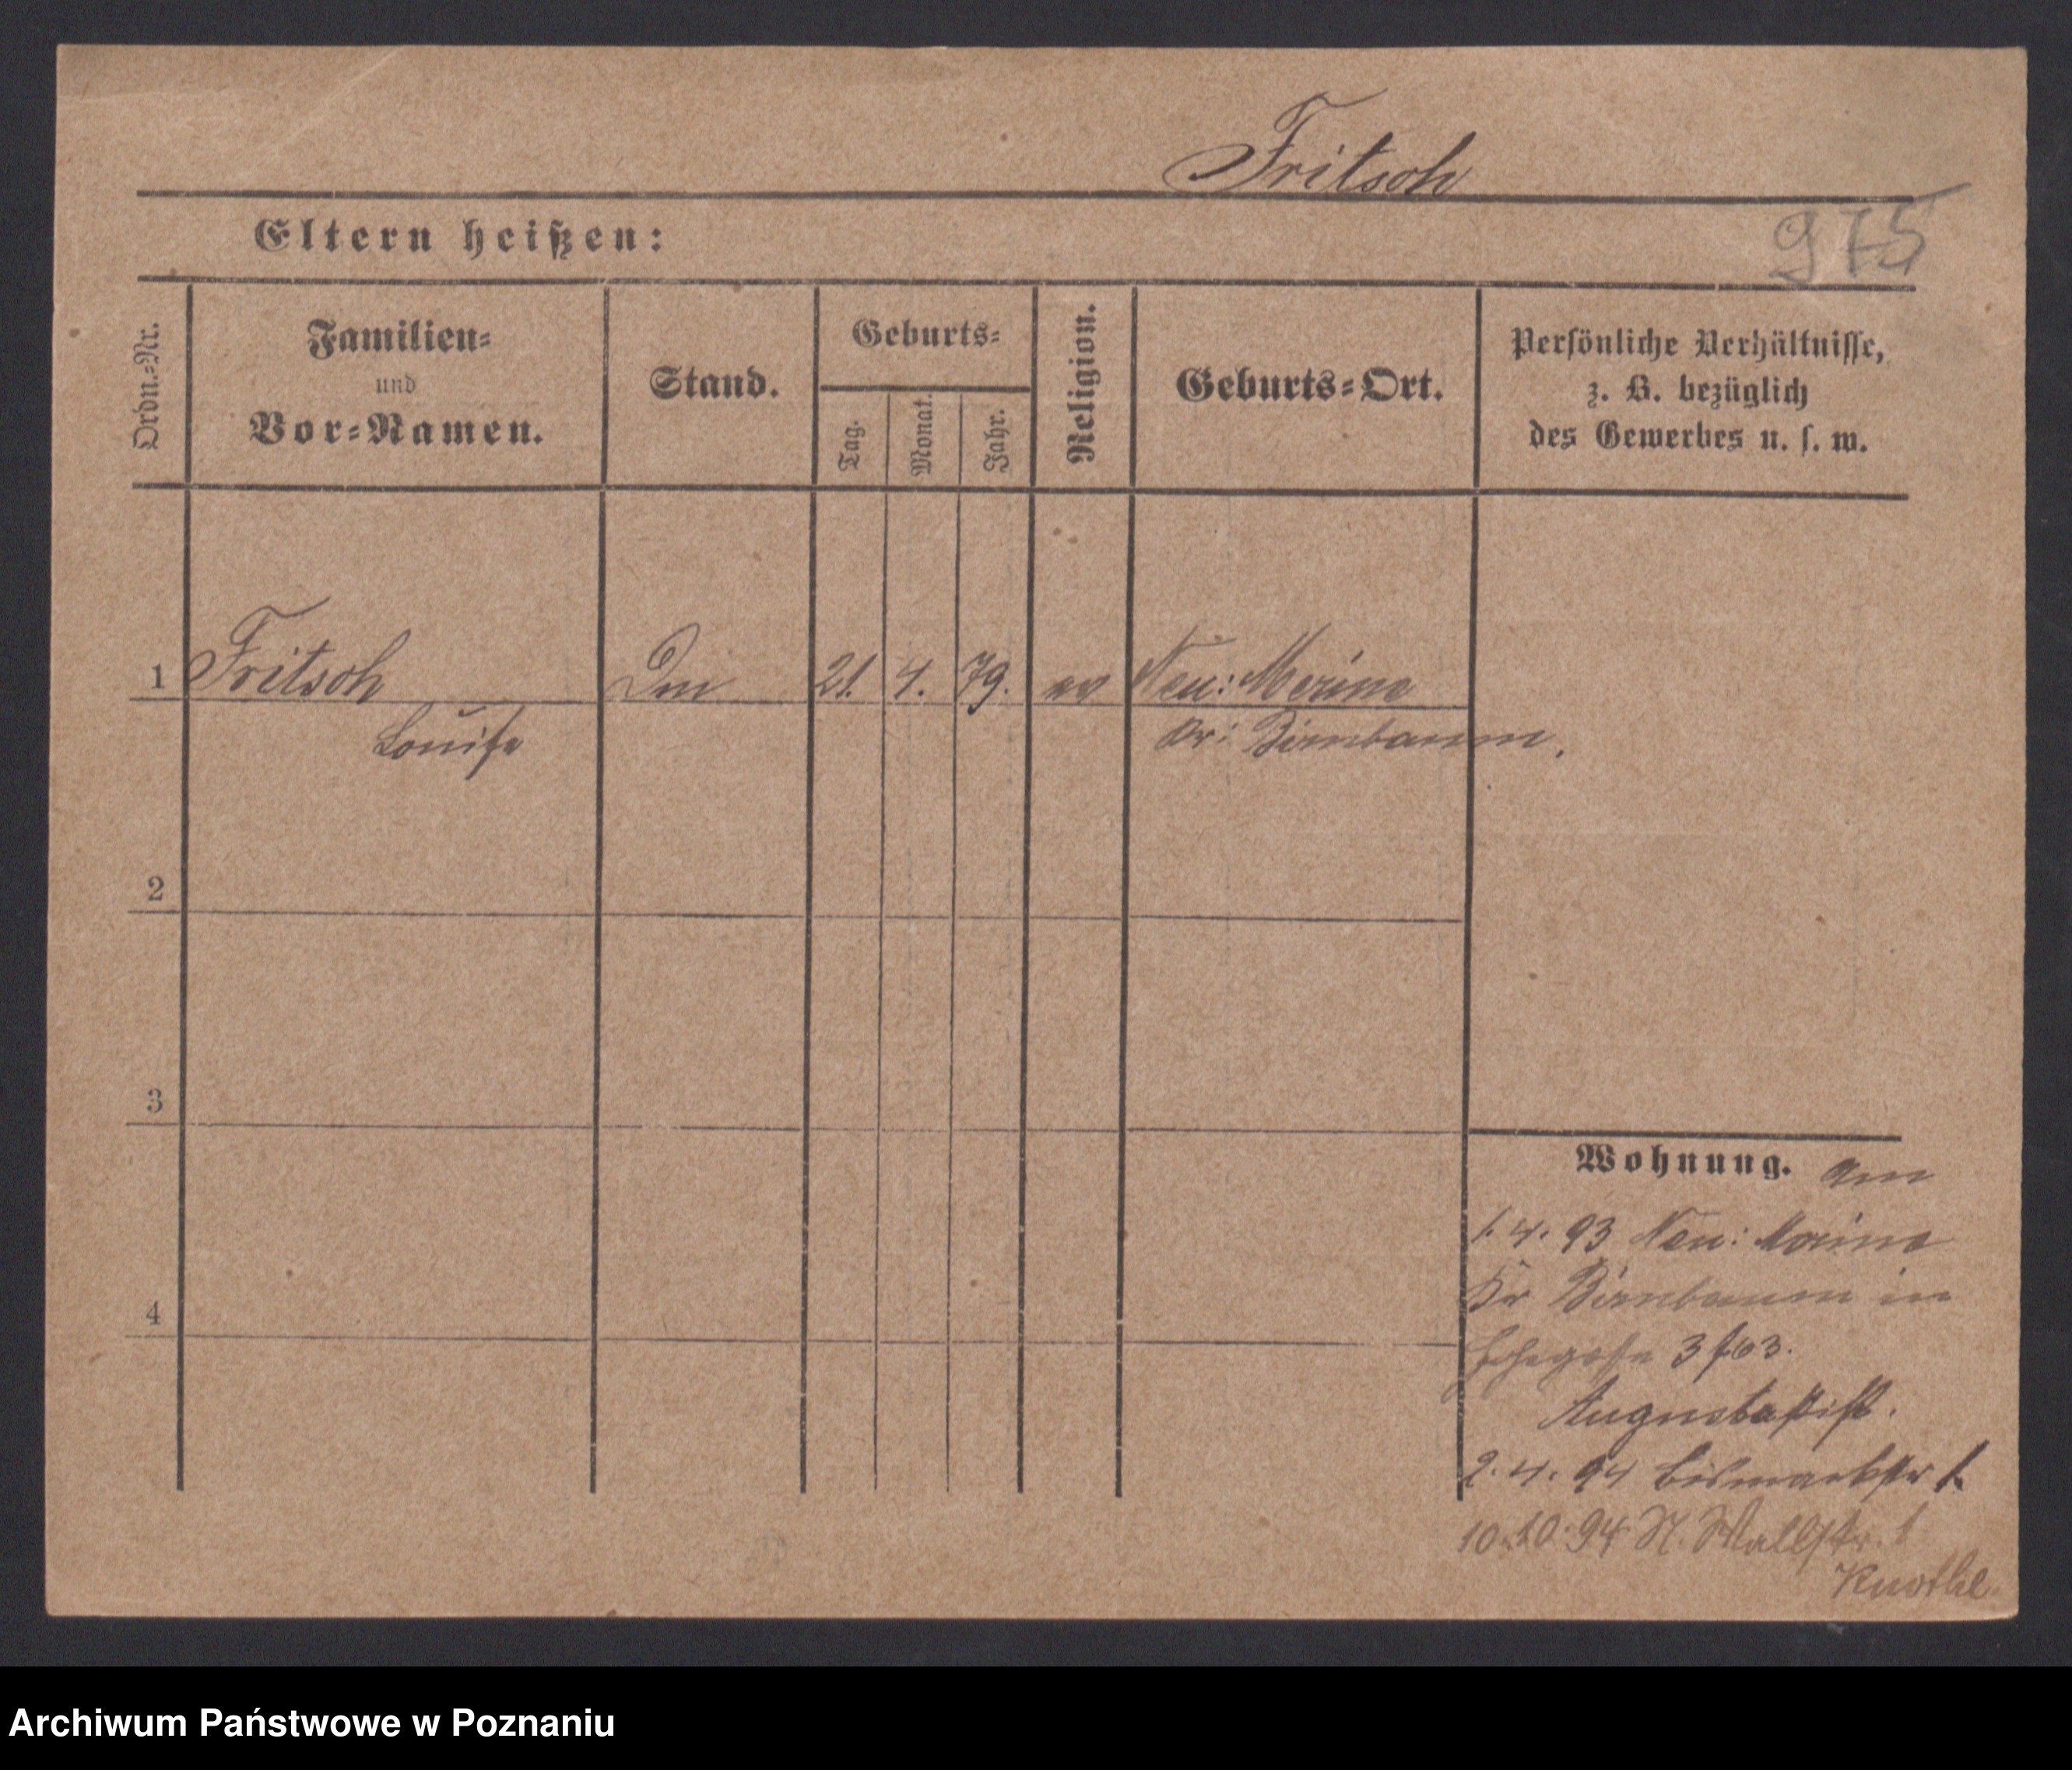 Fritsch
Eltern heißen:
975
Ordn.-Nr.
Familien-
und
Vor-Namen.
Stand.
Geburts-
Tag.
Monat.
Jahr.
Religion.
Geburts-Ort.
Persönliche Verhältnisse,
z. B. bezüglich
des Gewerbes u. s. w.
1 Fritsch 21. 4. 79. ev Neu: Merine
Louise Kr: Birnbaum.
2
3
4
Wohnung. Am
1. 4. 93 Neu: Merine
Kr Birnbaum in
3
Augustastift.
2. 4. 94 Bismarkstr 1.
10.10.94 N. Wallstr. 1
Knothe
Archiwum Państwowe w Poznaniu